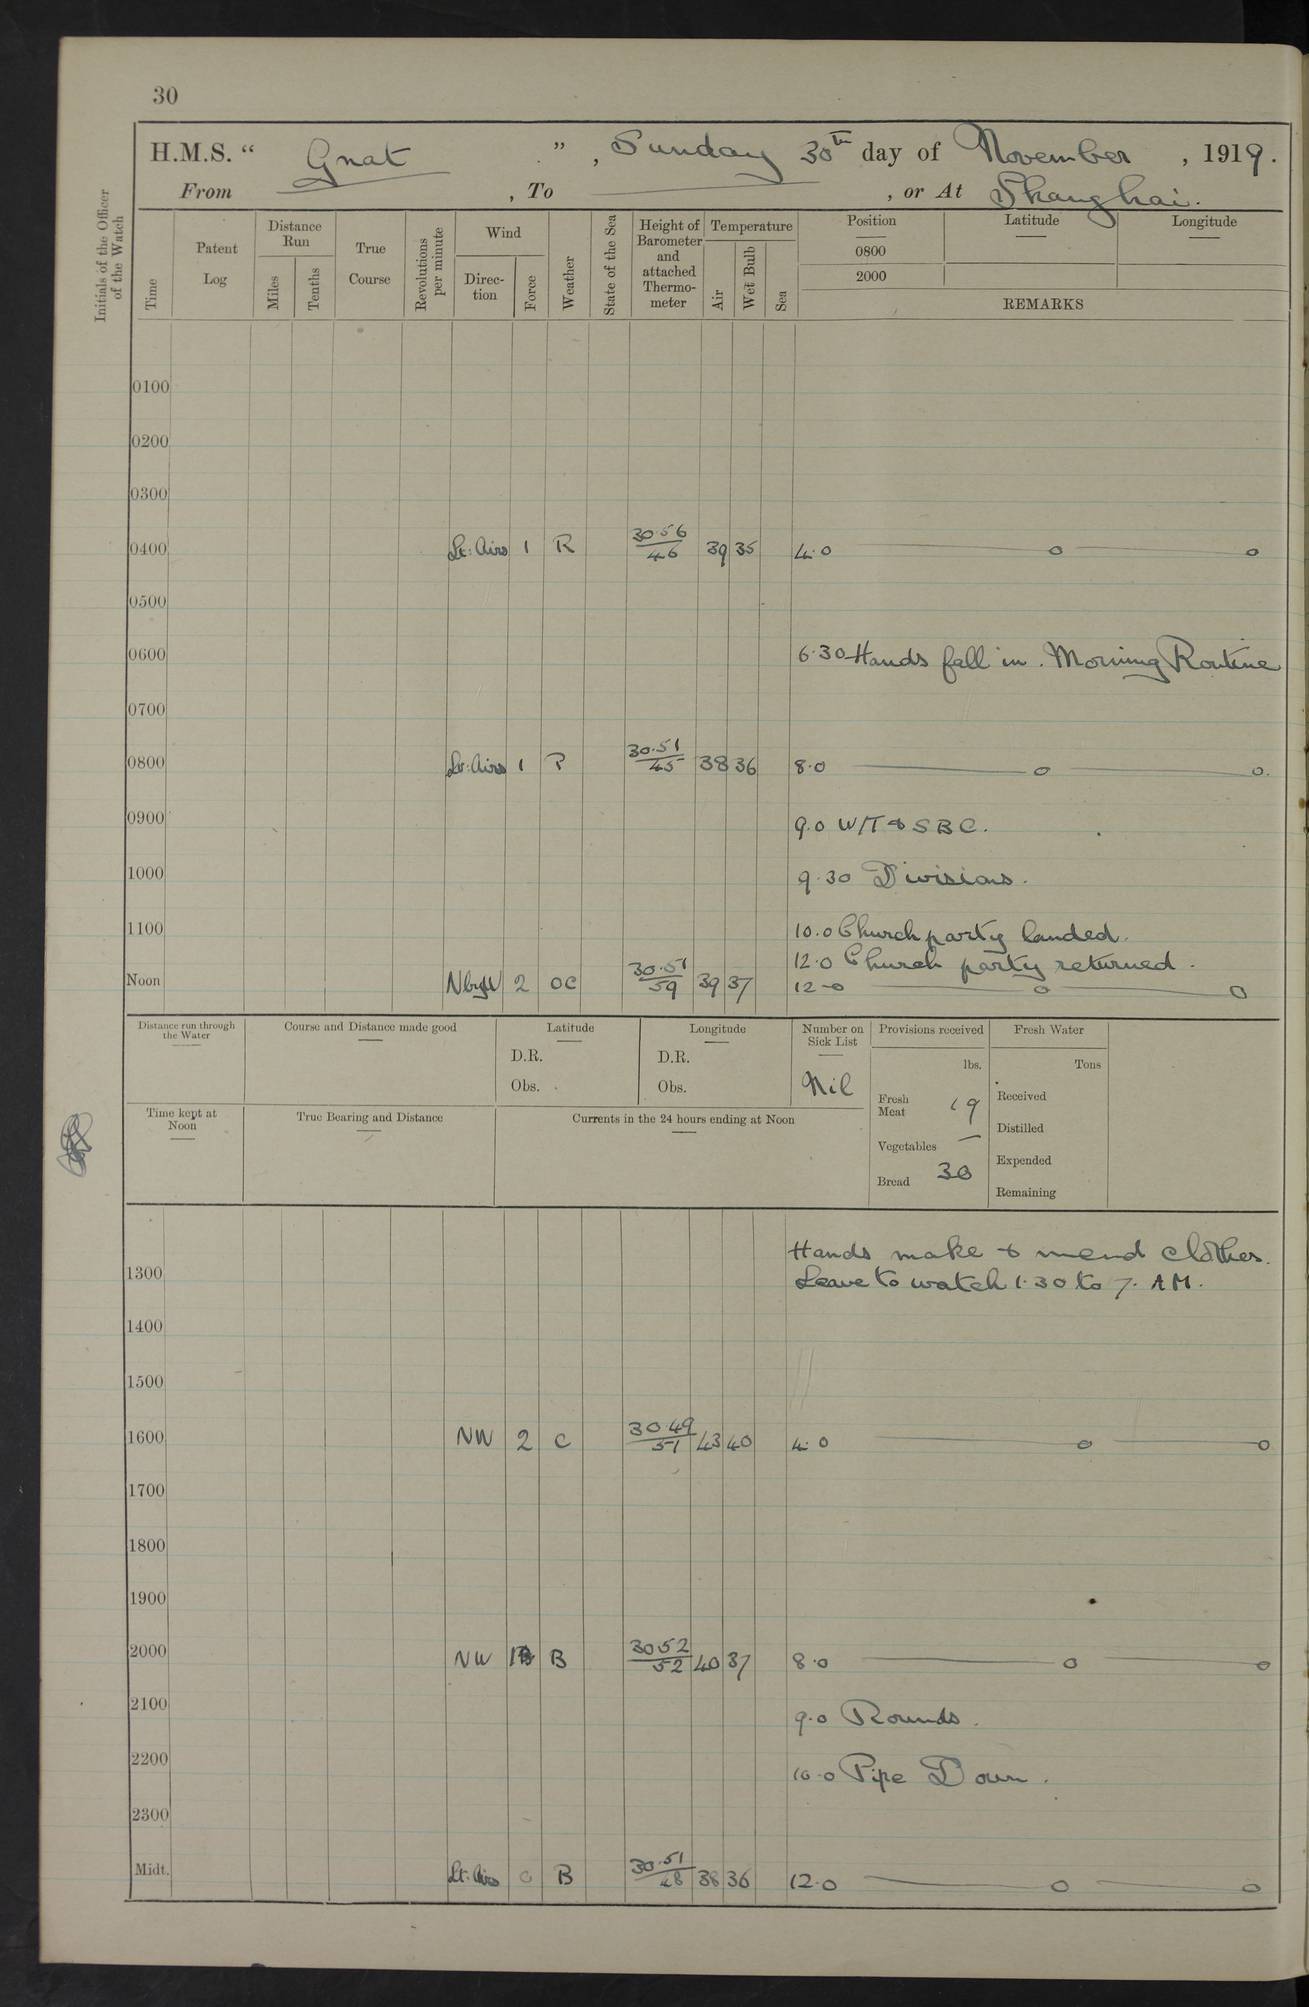 30
H.M.S. “ Gnat ” , Sunday 30th day of November , 1919.
From , To , or At Shanghai.
Initials of the Officer of the Watch
Time
Patent Log
Distance Run
Miles
Tenths
True Course
Revolutions per minute
Wind
Direc-tion
Force
Weather
State of the Sea
Height of Barometer and attached Thermo-meter
Temperature
Air
Wet Bulb
Sea
Position Latitude Longitude
0800
2000
REMARKS
0100
0200
0300
0400 Lt: Airs 1 R 30·56/46 39 35 4·0 —— o —— o
0500
0600 6·30 Hands fall in. Morning Routine
0700
0800 Lt: Airs 1 R 30·51/45 38 36 8·0 —— o —— o
0900 9.0 W/T & SBC.
1000 9·30 Divisions.
1100 10.0 Church party landed.
12·0 Church party returned.
Noon NbyW 2 OC 30·51/59 39 37 12-0 —— o —— o
Distance run through the Water
Course and Distance made good
Latitude
D.R.
Obs.
Longitude
D.R.
Obs.
Number on Sick List
Nil
Provisions received
lbs.
Fresh Meat 19
Vegetables —
Bread 30
Fresh Water
Tons
Received
Distilled
Expended
Remaining
Time kept at Noon
True Bearing and Distance
Currents in the 24 hours ending at Noon
Hands make & mend clothes.
1300 Leave to watch 1·30 to 7. AM.
1400
1500
1600 NW 2 C 30·49/51 43 40 4·0 —— o —— o
1700
1800
1900
2000 NW 1 B 30·52/52 40 37 8·0 —— o —— o
2100 9·0 Rounds.
2200 10·0 Pipe Down.
2300
Midt. Lt: Airs 0 B 30·51/48 38 36 12·0 —— o —— o